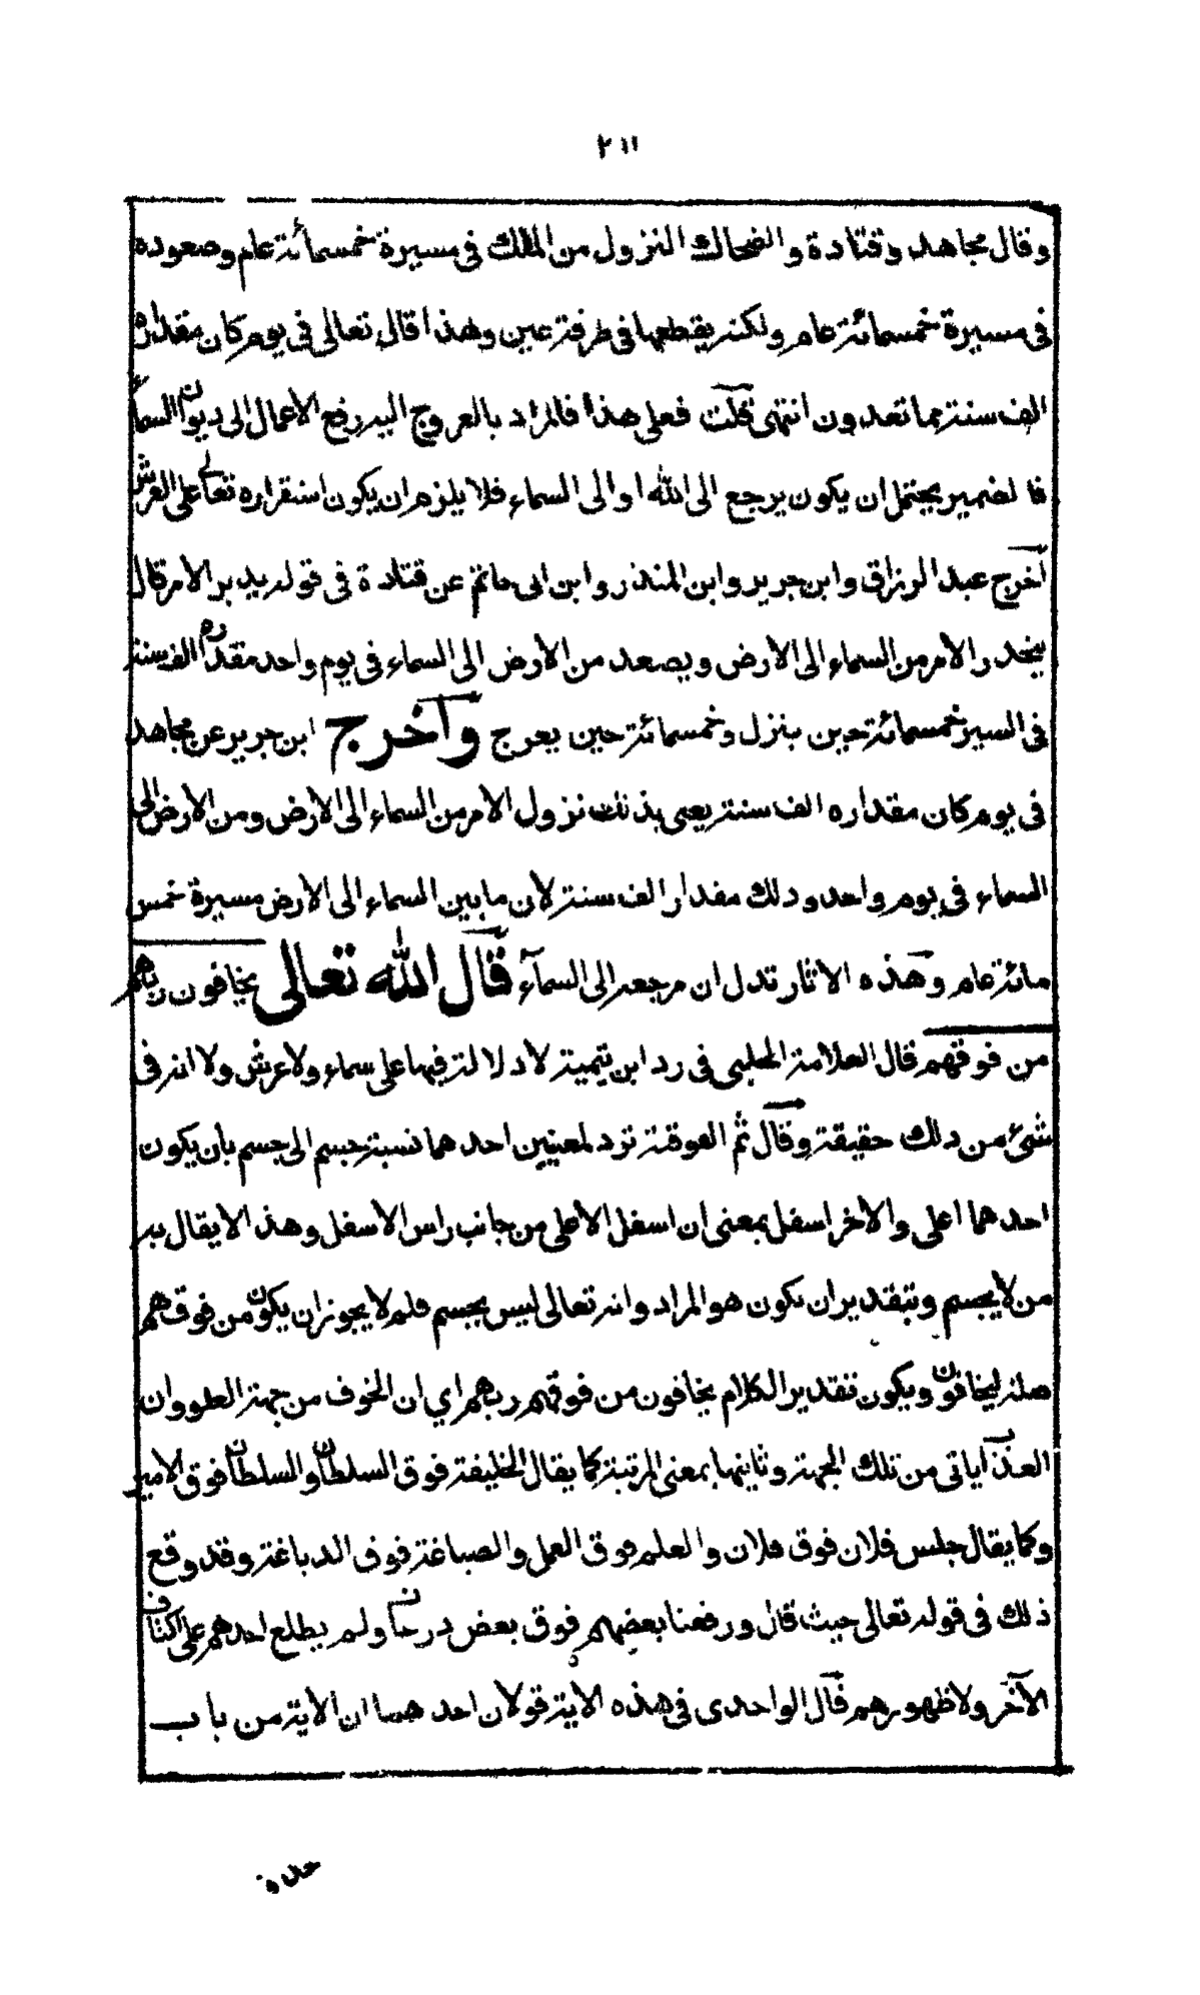 ٢١١
وقال مجاهد وقتادة والضحاك النزول من الملك في مسيرة خمسمائة عام وصعوده
في مسيرة خمسمائة عام ولكنه يقطعها في طرفة عين ولهذا قال تعالى في يوم كان مقداره
الف سنة مما تعدون انتهى قلت فعلى هذا فالمراد بالعروج اليه رفع الاعمال الى ديوان السماء
فالضمير يحتمل ان يكون يرجع الى الله او الى السماء فلا يلزم ان يكون استقراره تعالى على العرش
اخرج عبد الرزاق وابن جرير وابن المنذر وابن ابى حاتم عن قتادة في قوله يدبر الامر قال
ينحدر الامر من السماء الى الارض ويصعد من الارض الى السماء في يوم واحد مقداره الف سنة
في السير خمسمائة حين ينزل وخمسمائة حين يعرج واخرج ابن جرير عن مجاهد
في يوم كان مقداره الف سنة يعنى بذلك نزول الامر من السماء الى الارض ومن الارض الى
السماء في يوم واحد وذلك مقدار الف سنة لان ما بين السماء الى الارض مسيرة خمس
مائة عام وهذه الاثار تدل ان مرجعه الى السماء قال الله تعالى يخافون ربهم
من فوقهم قال العلامة الحلبى في رد ابن تيمية لا دلالة فيها على سماء ولا عرش ولا انه في
شئ من ذلك حقيقة وقال ثم الفوقية ترد لمعنيين احدهما نسبة جسم الى جسم بأن يكون
احدهما اعلى والاخر اسفل بمعنى ان اسفل الاعلى من جانب راس الاسفل وهذا لا يقال به
من لا يجسم وبتقدير ان يكون هو المراد وانه تعالى ليس بجسم فلم لا يجوز ان يكون من فوقهم
صلة ليخافون ويكون تقدير الكلام يخافون من فوقهم ربهم اي ان الخوف من جهة العلو وان
العذاب ياتى من تلك الجهة وثانيهما بمعنى المرتبة كما يقال الخليفة فوق السلطان والسلطان فوق الامير
وكما يقال جلس فلان فوق فلان والعلم فوق العمل والصباغة فوق الدباغة وقد وقع
ذلك في قوله تعالى حيث قال ورفعنا بعضهم فوق بعض درجات ولم يطلع احدهم على اكتاف
الآخر ولا ظهورهم قال الواحدى في هذه الاية قولان احدهما ان الاية من باب
حذف